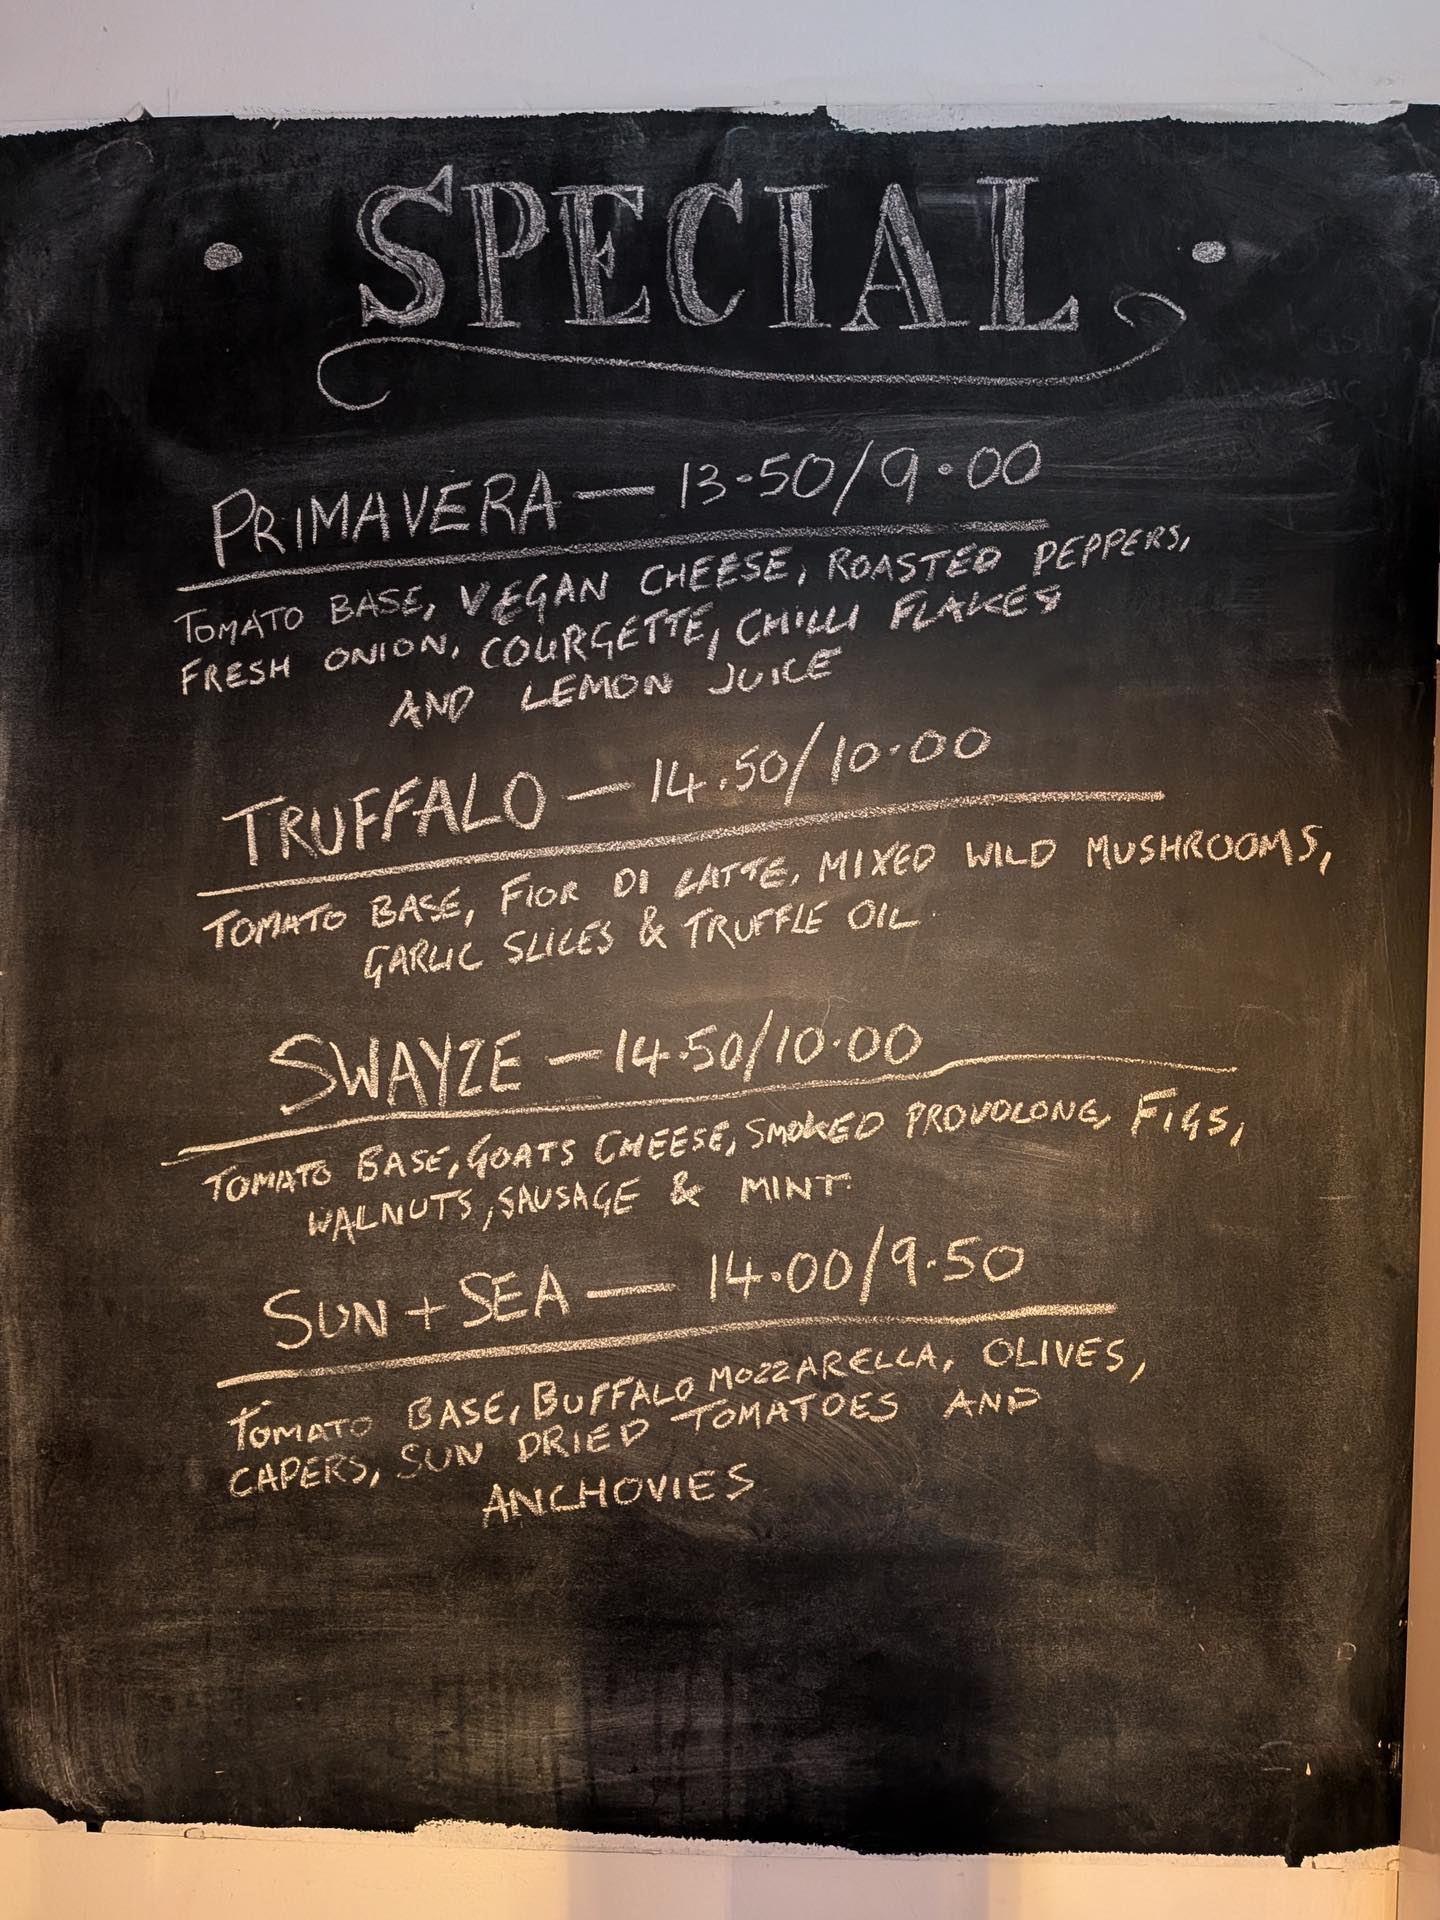 SPECIAL
PRIMAVERA — 13.50/9.00
TOMATO BASE, VEGAN CHEESE, ROASTED PEPPERS,
FRESH ONION, COURGETTE, CHILLI FLAKES
AND LEMON JUICE
TRUFFALO — 14.50/10.00
TOMATO BASE, FIOR DI LATTE, MIXED WILD MUSHROOMS,
GARLIC SLICES & TRUFFLE OIL
SWAYZE — 14.50/10.00
TOMATO BASE, GOATS CHEESE, SMOKED PROVOLONE, FIGS,
WALNUTS, SAUSAGE & MINT
SUN + SEA — 14.00/9.50
TOMATO BASE, BUFFALO MOZZARELLA, OLIVES,
CAPERS, SUN DRIED TOMATOES AND
ANCHOVIES